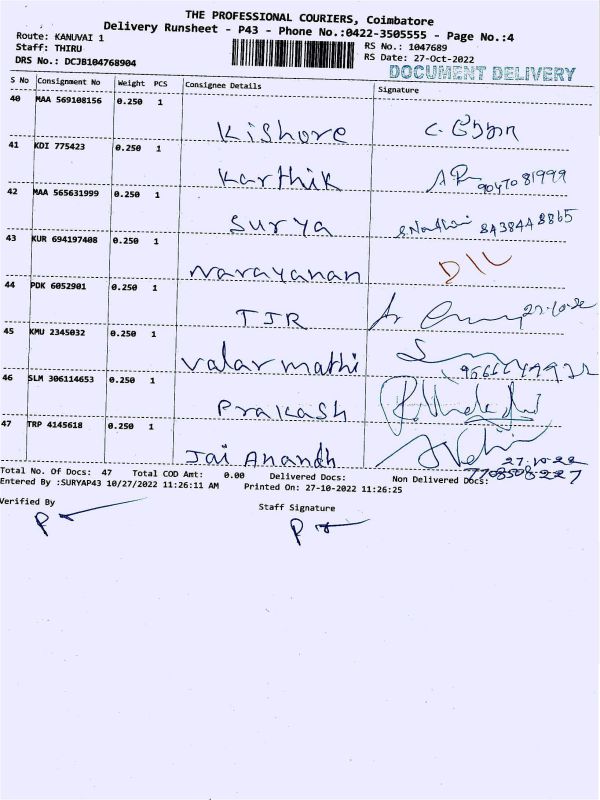 THE PROFESSIONAL COURIERS, Coimbatore
Delivery Runsheet - P43 - Phone No.:0422-3505555 - Page No.:4
Route: KANUVAI 1
RS No.: 1047689
Staff: THIRU
RS Date: 27-Oct-2022
DRS No.: DCJB104768904
DOCUMENT DELIVERY
S No Consignment No Weight PCS Consignee Details Signature
40 MAA 569108156 0.250 1
Kishore
41 KDI 775423 0.250 1
Karthik 9047081999
42 MAA 565631999 0.250 1
Surya 8438448865
43 KUR 694197408 0.250 1
Narayanan D/L
44 PDK 6052901 0.250 1
TJR 27-10-22
45 KMU 2345032 0.250 1
Valarmathi
46 SLM 306114653 0.250 1
Prakash
47 TRP 4145618 0.250 1
Jai Anandh 27-10-22
7708508227
Total No. Of Docs: 47 Total COD Amt: 0.00 Delivered Docs: Non Delivered Docs:
Entered By :SURYAP43 10/27/2022 11:26:11 AM Printed On: 27-10-2022 11:26:25
Verified By
Staff Signature